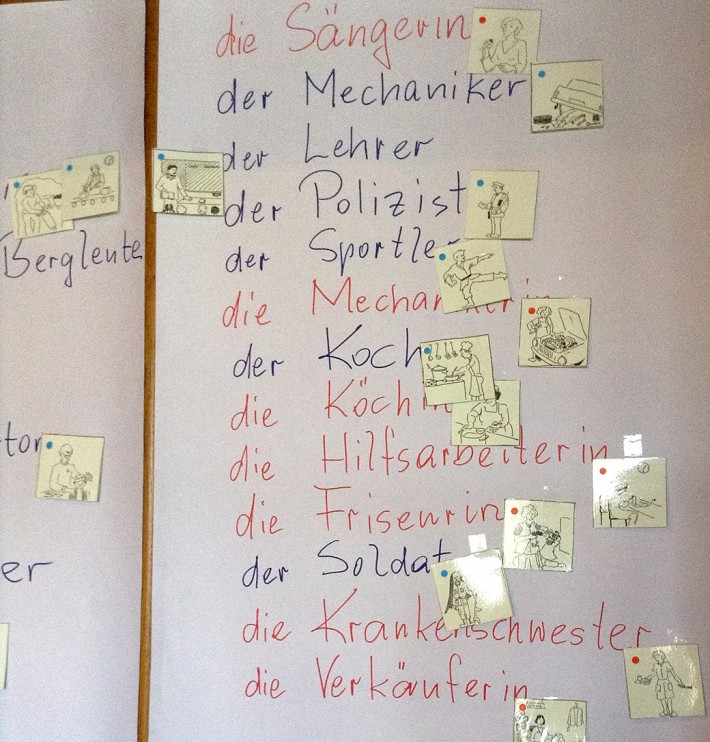 Bergleute
tor
er
die Sängerin
der Mechaniker
der Lehrer
der Polizist
der Sportler
die Mechanikerin
der Koch
die Köchin
die Hilfsarbeiterin
die Friseurin
der Soldat
die Krankenschwester
die Verkäuferin